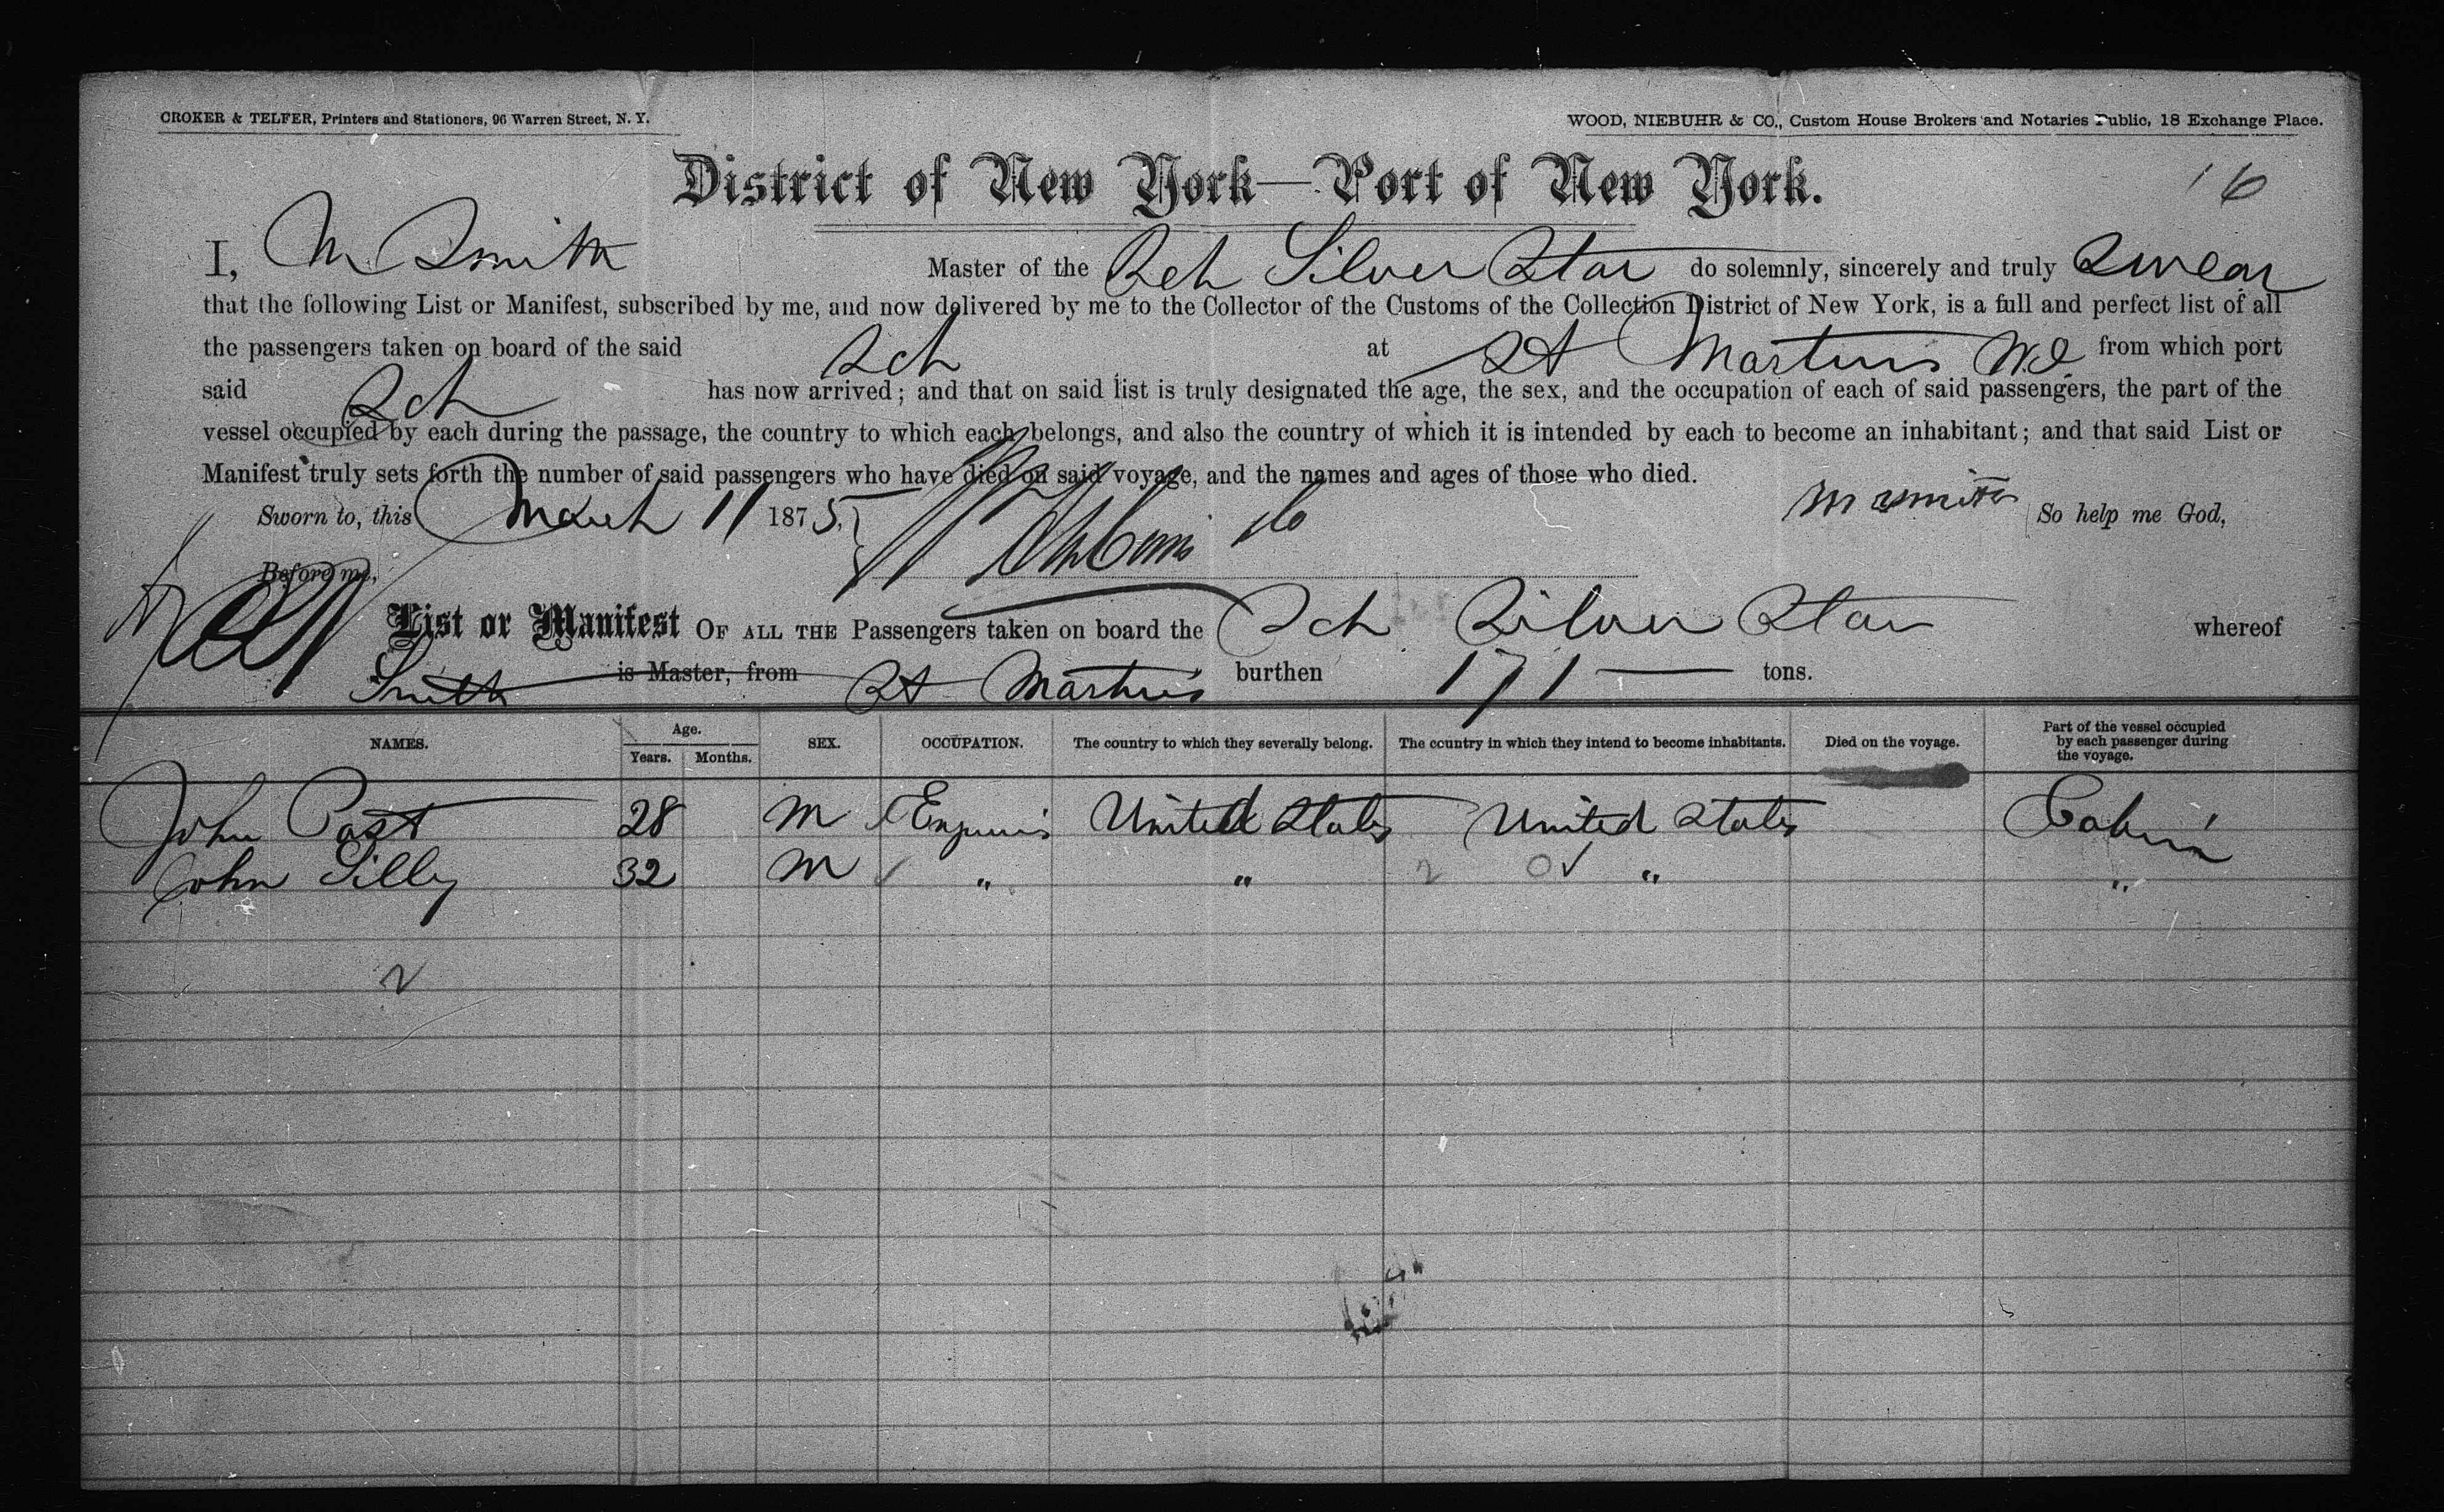 CROKER & TELFER, Printers and Stationers, 96 Warren Street, N. Y.
WOOD, NIEBUHR & CO., Custom House Brokers and Notaries Public, 18 Exchange Place.
District of New York—Port of New York.
16
I, M Smith Master of the Sch Silver Star do solemnly, sincerely and truly Swear
that the following List or Manifest, subscribed by me, and now delivered by me to the Collector of the Customs of the Collection District of New York, is a full and perfect list of all
the passengers taken on board of the said Sch at St Martins W.I. from which port
said Sch has now arrived; and that on said list is truly designated the age, the sex, and the occupation of each of said passengers, the part of the
vessel occupied by each during the passage, the country to which each belongs, and also the country of which it is intended by each to become an inhabitant; and that said List or
Manifest truly sets forth the number of said passengers who have died on said voyage, and the names and ages of those who died.
Sworn to, this March 11 1875, M Smith So help me God,
Before me,
List or Manifest OF ALL THE Passengers taken on board the Sch Silver Star whereof
Smith is Master, from St Martins burthen 171 — tons.
NAMES. Age. Years. Months. SEX. OCCUPATION. The country to which they severally belong. The country in which they intend to become inhabitants. Died on the voyage. Part of the vessel occupied by each passenger during the voyage.
John Post 28 M United States United States Cabin
John Silly 32 M " " 2 0✓ " "
2